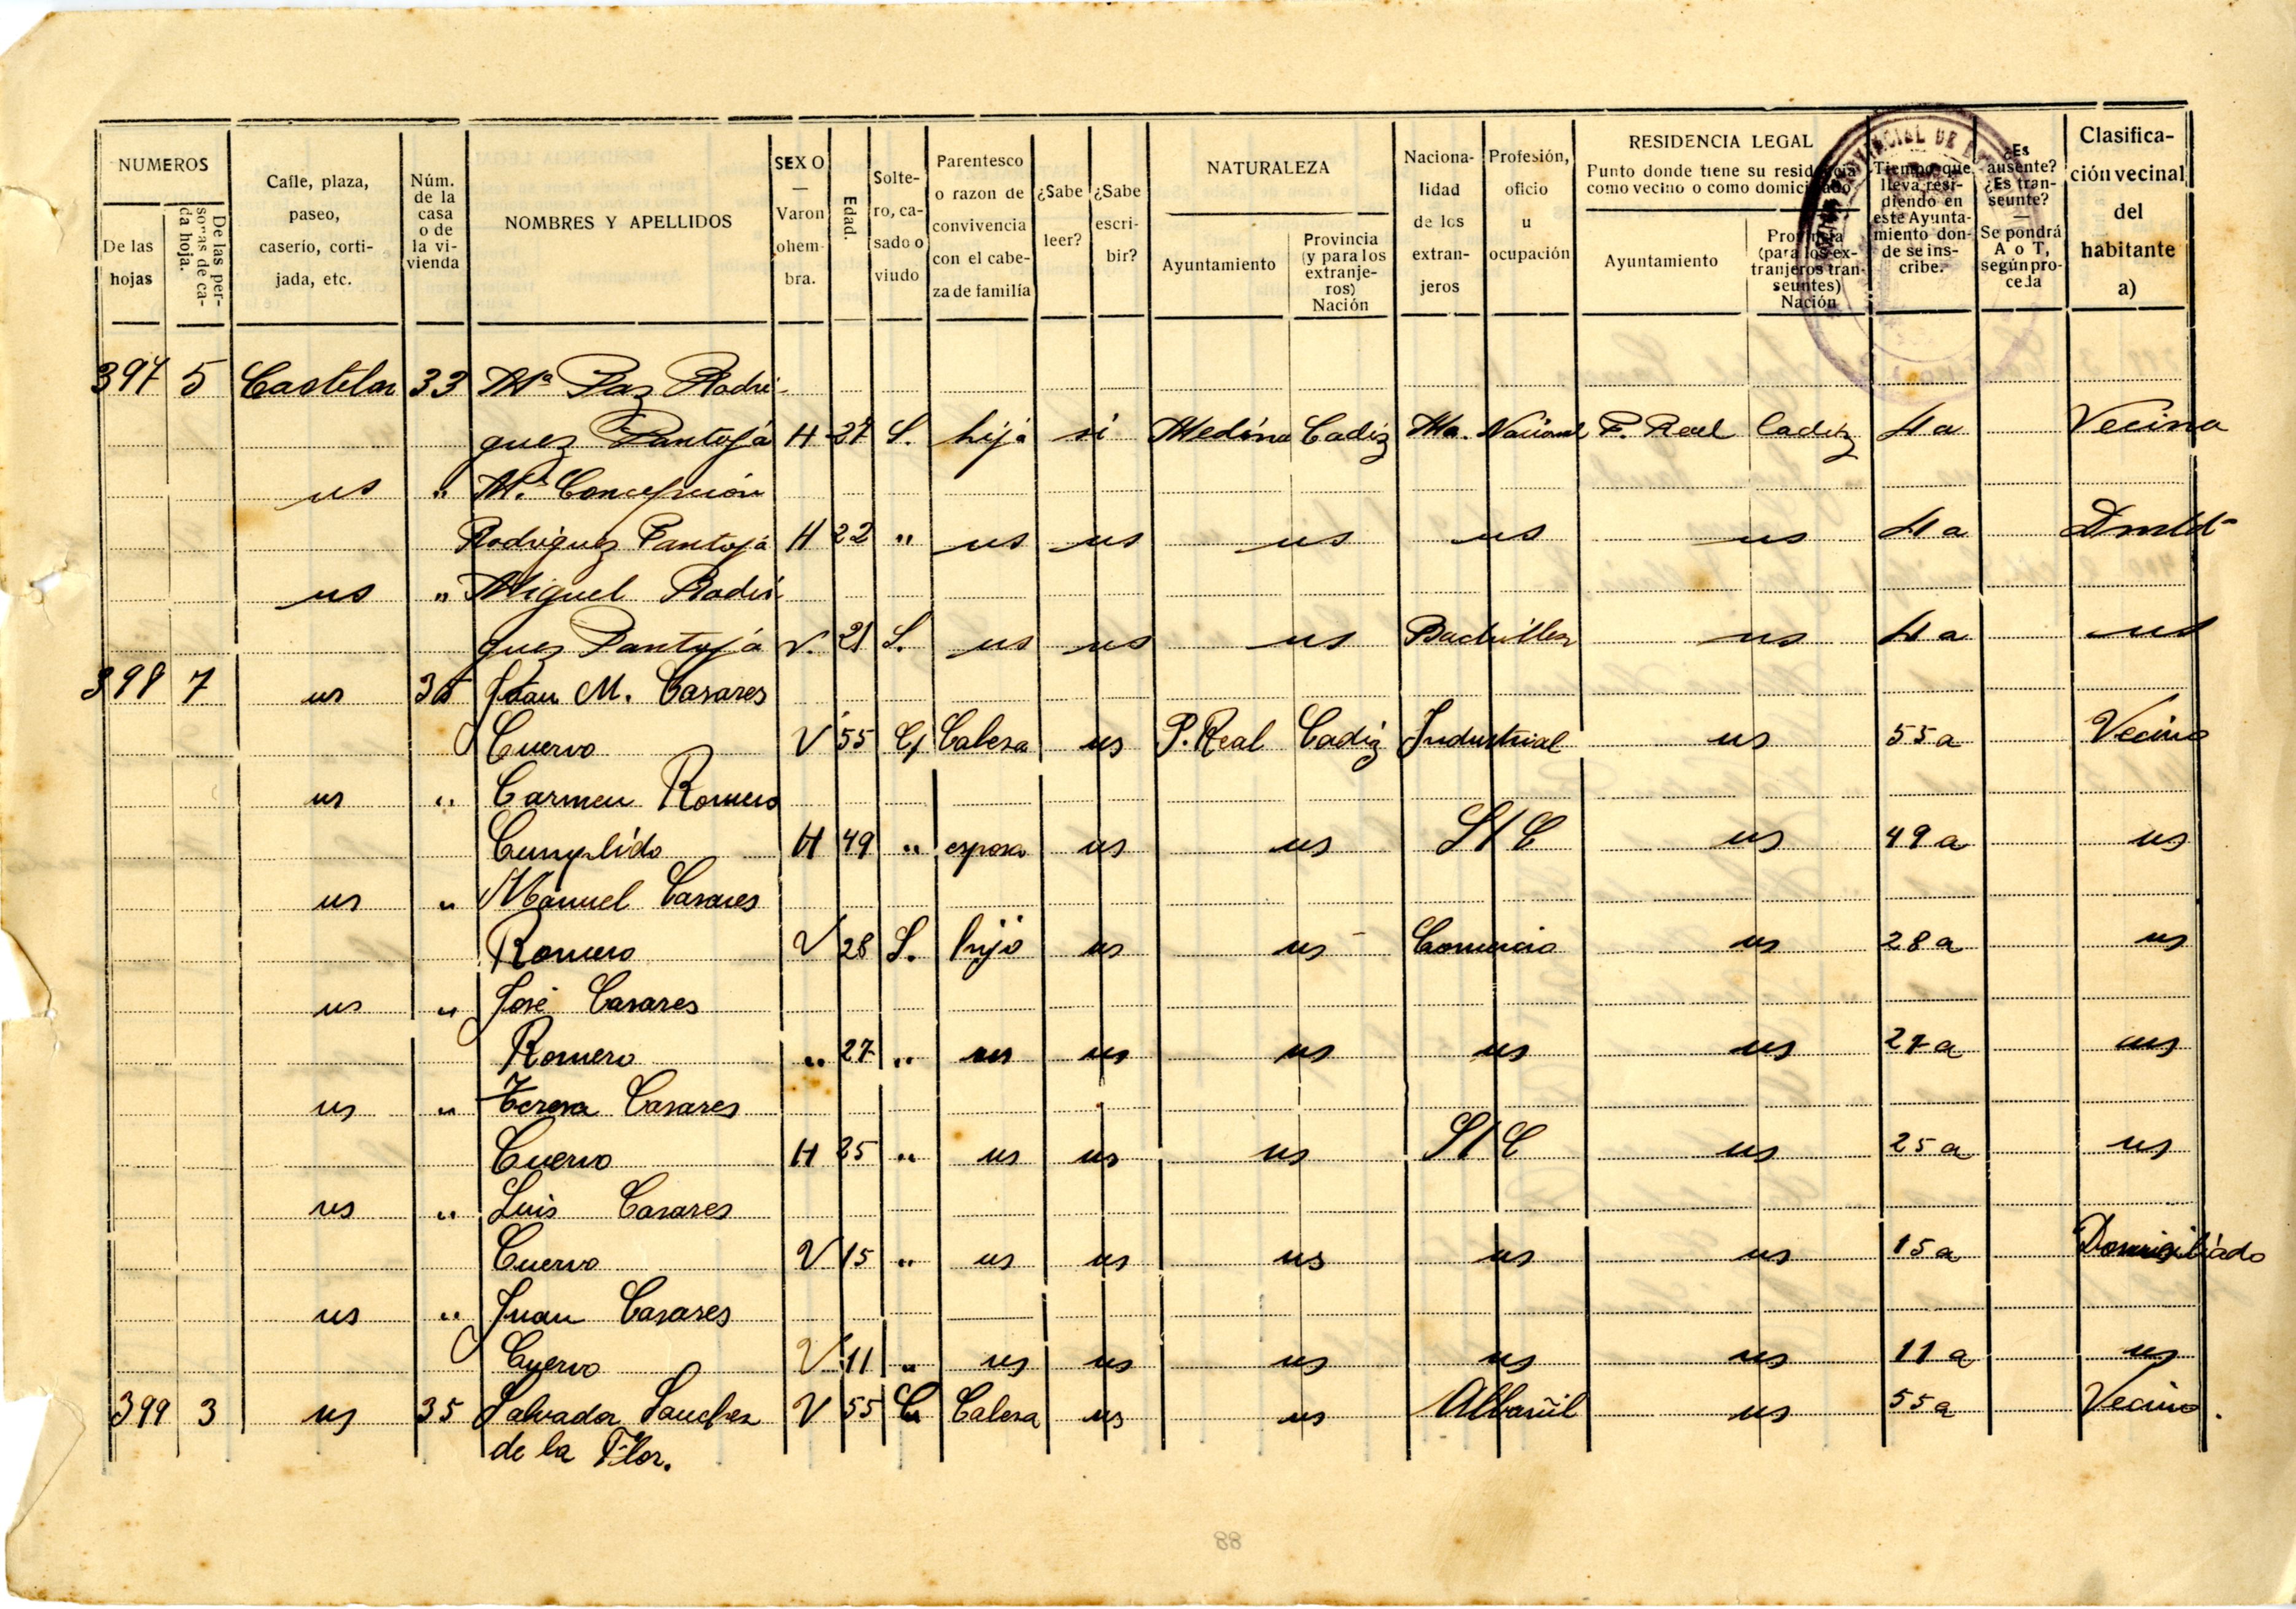 NUMEROS
De las hojas
De las personas de cada hoja.
Calle, plaza, paseo, caserío, cortijada, etc.
Núm. de la casa o de la vivienda
NOMBRES Y APELLIDOS
SEXO — Varon ohembra.
Edad.
Soltero, casado o viudo
Parentesco o razon de convivencia con el cabeza de familia
¿Sabe leer?
¿Sabe escribir?
NATURALEZA
Ayuntamiento
Provincia (y para los extranjeros) Nación
Nacionalidad de los extranjeros
Profesión, oficio u ocupación
RESIDENCIA LEGAL
Punto donde tiene su residencia como vecino o como domiciliado
Ayuntamiento
Provincia (para los extranjeros transeuntes) Nación
Tiempo que lleva residiendo en este Ayuntamiento donde se inscribe.
¿Es ausente? ¿Es transeunte? — Se pondrá A o T, según proceda
Clasificación vecinal del habitante a)
397 5 Castelar 33 Mª Paz Rodri
guez Pantoja H 27 S. hija si Medina Cadiz Ma. Nacional P. Real Cadiz 4 a Vecina
us " Mª Concepción
Rodriguez Pantoja H 22 " us us us us us 4 a Dmld
us " Miguel Rodri
guez Pantoja V. 21 S. us us us Bachiller us 4 a us
398 7 us 35 Juan M. Casares
Cuervo V 55 C/ Cabesa us P. Real Cadiz Industrial us 55 a Vecino
us " Carmen Romero
Cumplido H 49 " esposa us us S/C us 49 a us
us " Manuel Casares
Romero V 28 S. hijo us us Comercio us 28 a us
us " José Casares
Romero " 27 " us us us us us 27 a us
us " Teresa Casares
Cuervo H 25 " us us us S/C us 25 a us
us " Luis Casares
Cuervo V 15 " us us us us us 15 a Domiciliado
us " Juan Casares
Cuervo V 11 " us us us us us 11 a us
399 3 us 35 Salvador Sanchez V 55 C Cabesa us us Albañil us 55 a Vecino.
de la Flor.
88